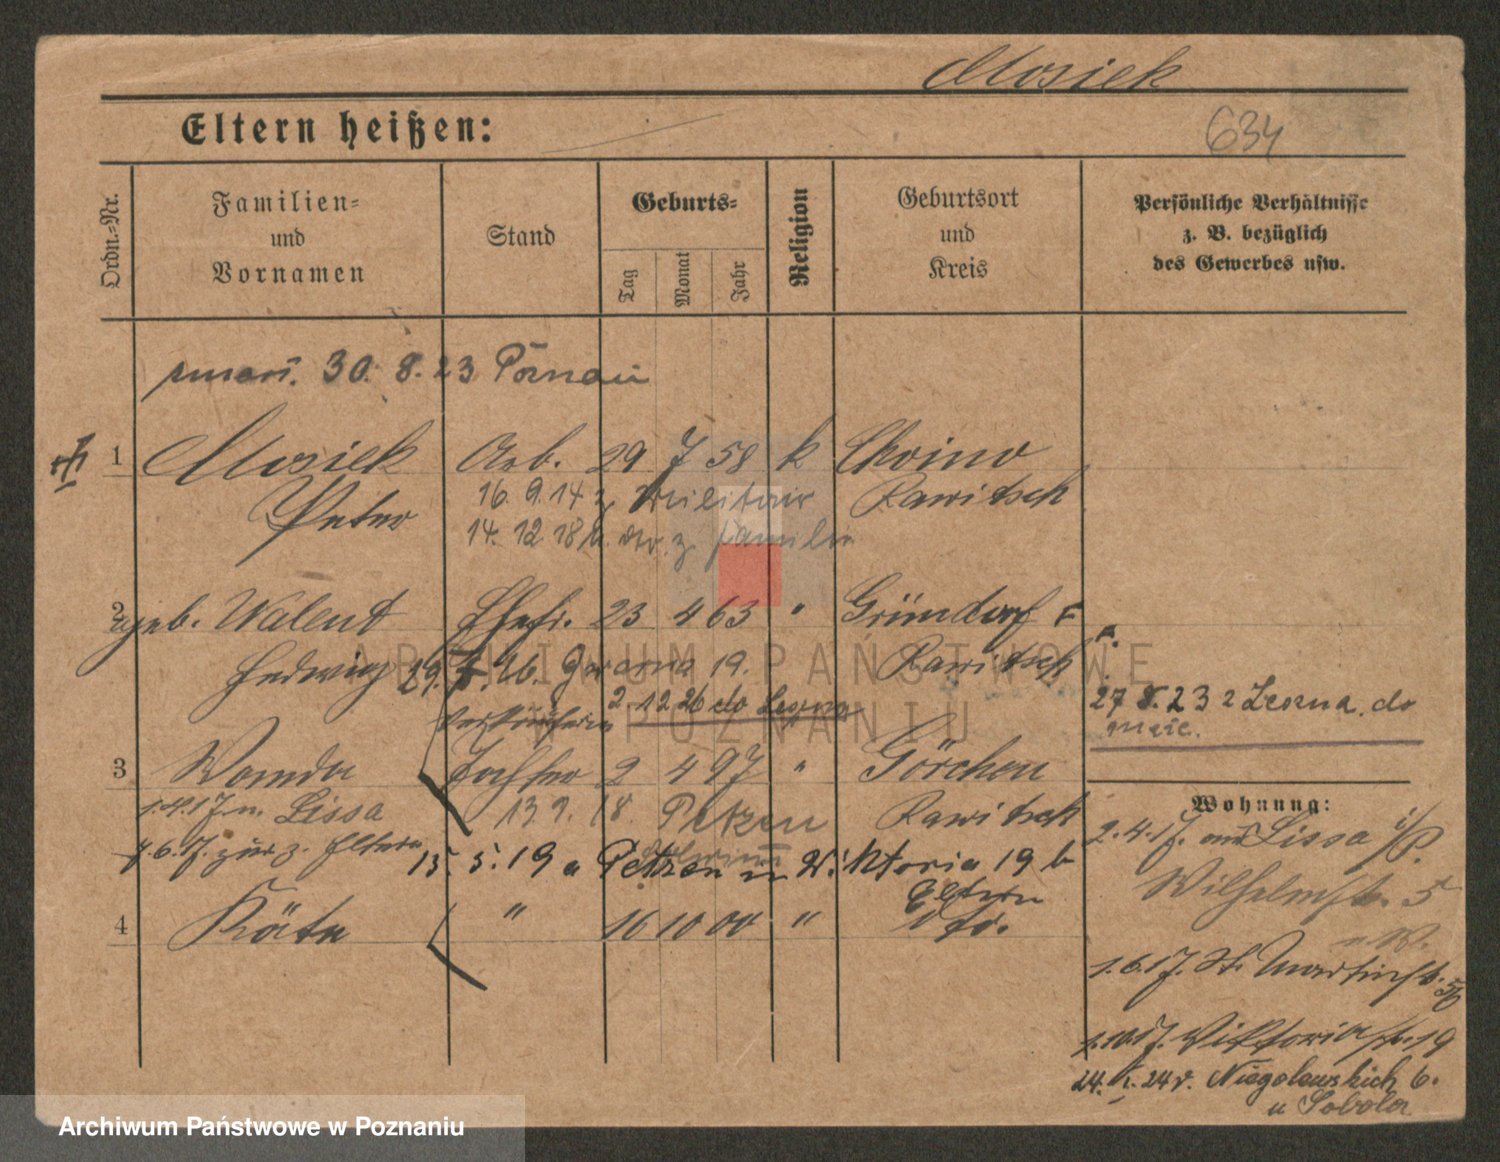 Mosiek
634
Eltern heißen:
Ordn.-Nr.
Familien-
und
Vornamen
Stand
Geburts-
Tag
Monat
Jahr
Religion
Geburtsort
und
Kreis
Persönliche Verhältnisse
z. B. bezüglich
des Gewerbes usw.
zmarł. 30. 8. 23 Poznań
1 Mosiek Arb. 29 7 58 k Choino
Peter Rawitsch
16. 9. 14 z. Militair
14. 12. 18 z. Familie
2 geb. Walent Ehefr. 23 4 63 " Gründorf
Hedwig Rawitsch
29. 26. 19.
2. 12 26 do Leszna
27 8. 23 z Leszna. do
3 Wanda Tochter 2 4 97 " Görchen
Rawitsch
1.4.17. n. Lissa 13 9. 18. Petzen
4.6.17. zur z. Eltern
15. 5. 19 a Petzen Viktoria 19 b
Eltern
4 Käte " 16 10 00 " dto.
Wohnung:
2. 4. 17. aus Lissa i/P.
Wilhelmstr. 5
1.6.17. St. Martinstr.
1.10.17. Viktoriastr. 19
24. 24 r. Niegolewskich 6.
u Sobola
ARCHIWUM PAŃSTWOWE
W POZNANIU
Archiwum Państwowe w Poznaniu